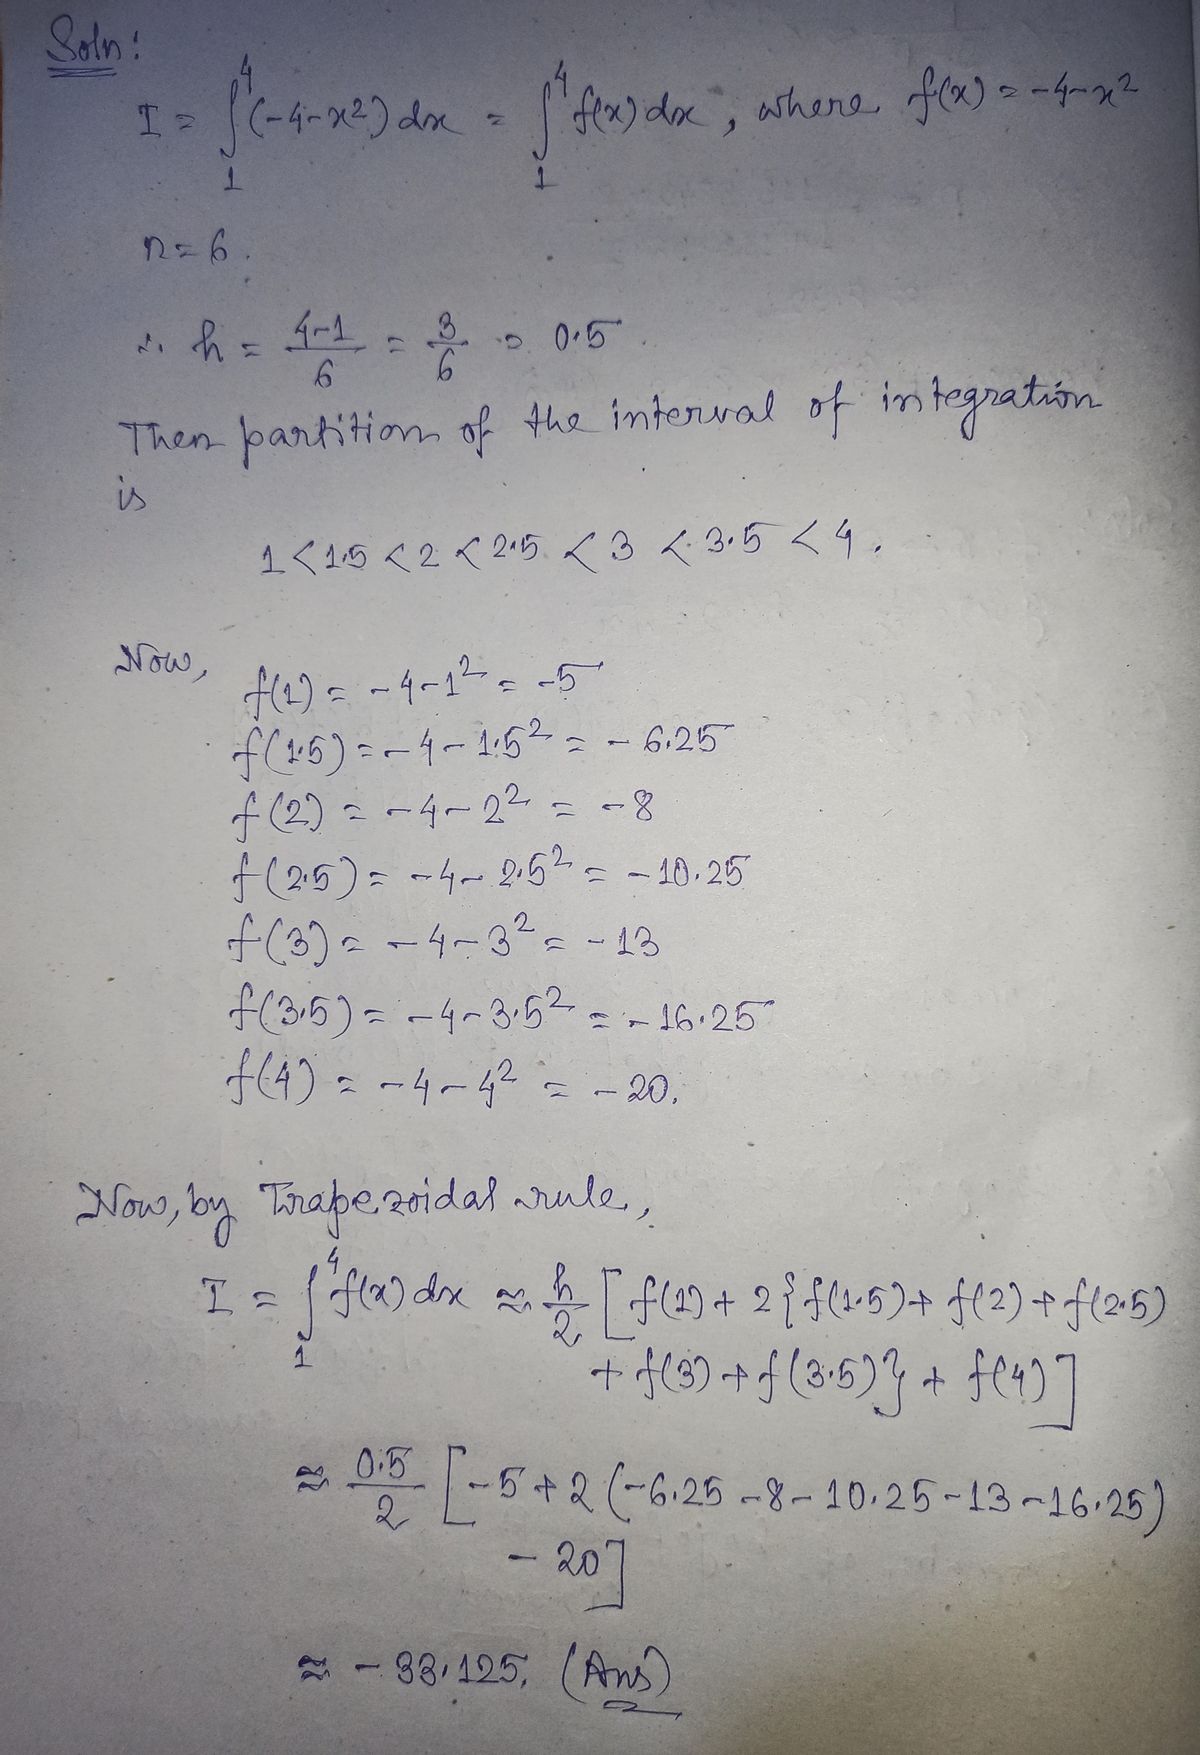 Soln:
I = ∫₁⁴ (-4-x²) dx = ∫₁⁴ f(x) dx, where f(x) = -4-x²
n=6.
∴ h = (4-1)/6 = 3/6 = 0.5
Then partition of the interval of integration
is
1 < 1.5 < 2 < 2.5 < 3 < 3.5 < 4.
Now,
f(1) = -4-1² = -5
f(1.5) = -4-1.5² = -6.25
f(2) = -4-2² = -8
f(2.5) = -4-2.5² = -10.25
f(3) = -4-3² = -13
f(3.5) = -4-3.5² = -16.25
f(4) = -4-4² = -20.
Now, by Trapezoidal rule,
I = ∫₁⁴ f(x) dx ≈ h/2 [f(1) + 2{f(1.5) + f(2) + f(2.5)
+ f(3) + f(3.5)} + f(4)]
≈ 0.5/2 [-5+2(-6.25-8-10.25-13-16.25)
-20]
≈ -33.125. (Ans)